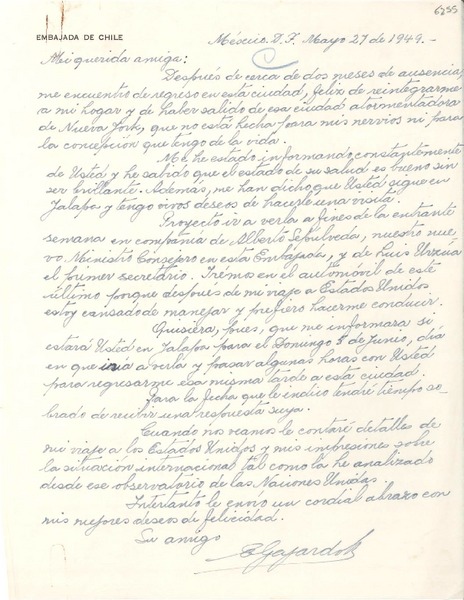 6255
EMBAJADA DE CHILE
México. D. F. Mayo 27 de 1949.-
Mi querida amiga:
Después de cerca de dos meses de ausencia,
me encuentro de regreso en esta ciudad, feliz de reintegrarme
a mi hogar y de haber salido de esa ciudad atormentadora
de Nueva York, que no está hecha para mis nervios ni para
la concepción que tengo de la vida.
Me he estado informando constantemente
de Usted y he sabido que el estado de su salud es bueno sin
ser brillante. Además, me han dicho que Usted sigue en
Jalapa y tengo vivos deseos de hacerle una visita.
Proyecto ir a verla a fines de la entrante
semana en compañía de Alberto Sepúlveda, nuestro nue-
vo Ministro Consejero en esta Embajada, y de Luis Urzúa
el primer secretario. Iremos en el automóvil de este
último porque después de mi viaje a Estados Unidos
estoy cansado de manejar y prefiero hacerme conducir.
Quisiera, pues, que me informara si
estará Usted en Jalapa para el Domingo 5 de Junio, día
en que iría a verla y pasar algunas horas con Usted
para regresarme esa misma tarde a esta ciudad.
Para la fecha que le indico tendré tiempo so-
brado de recibir una respuesta suya.
Cuando nos veamos le contaré detalles de
mi viaje a los Estados Unidos y mis impresiones sobre
la situación internacional tal como la he analizado
desde ese observatorio de las Naciones Unidas.
Intertanto le envío un cordial abrazo con
mis mejores deseos de felicidad.
Su amigo
EGajardoV